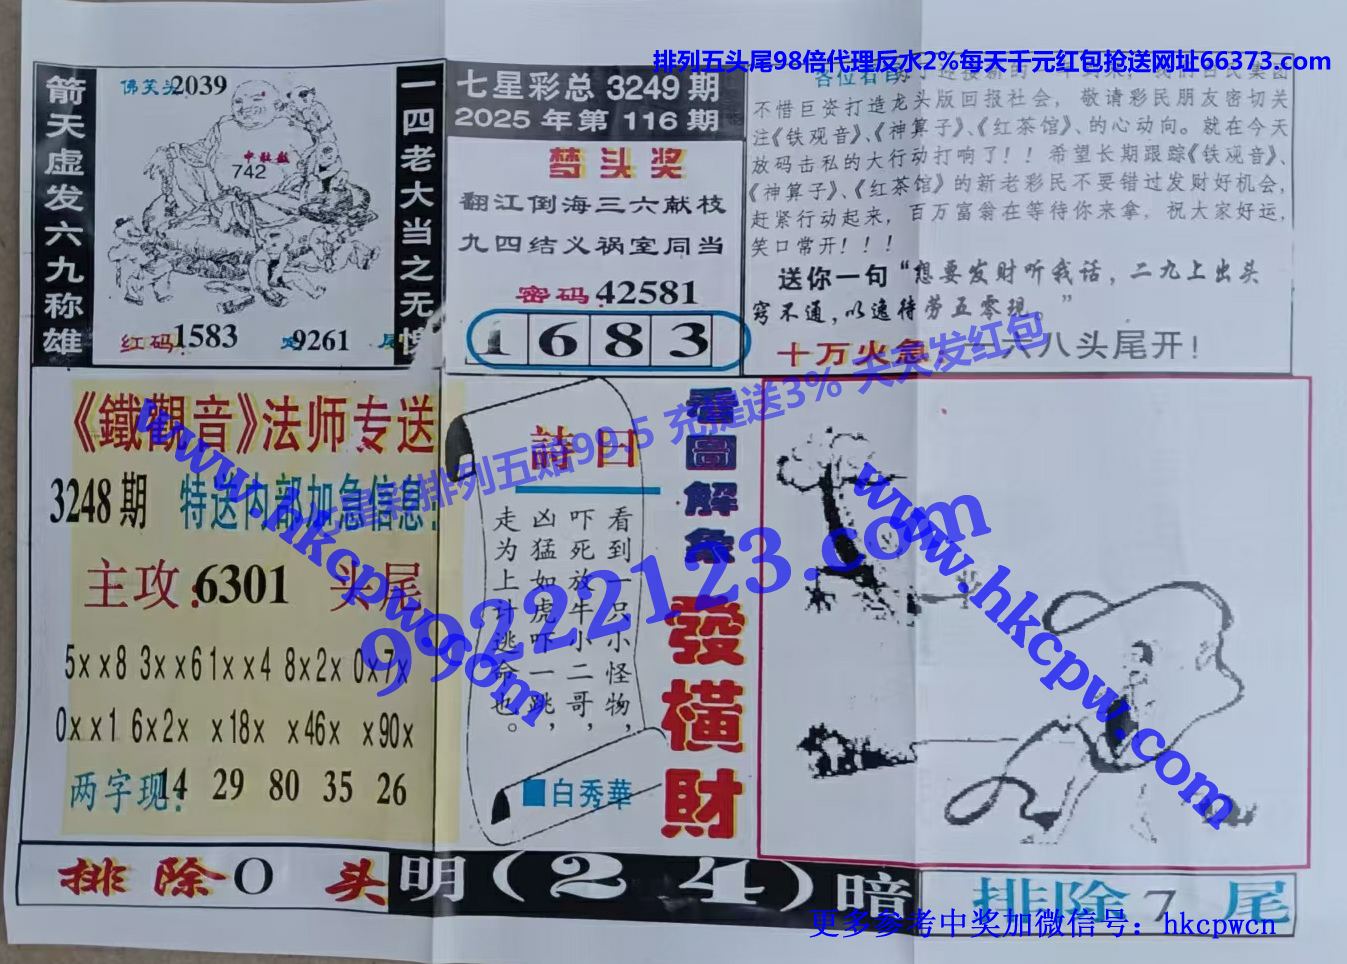 排列五头尾98倍代理反水2%每天千元红包抢送网址66373.com
箭天虚发六九称雄
佛笑头2039
中肚数
742
红码1583
9261 尾
一四老大当之无愧
七星彩总 3249 期
2025 年第 116 期
梦头奖
翻江倒海三六献枝
九四结义祸室同当
密码:42581
1 6 8 3
不惜巨资打造龙头版回报社会，敬请彩民朋友密切关
注《铁观音》、《神算子》、《红茶馆》、的心动向。就在今天
放码击私的大行动打响了！！希望长期跟踪《铁观音》、
《神算子》、《红茶馆》的新老彩民不要错过发财好机会，
赶紧行动起来，百万富翁在等待你来拿，祝大家好运，
笑口常开！！！
送你一句“想要发财听我话，二九上出头
窍不通，以逸待劳五零现。”
十万火急：一六八头尾开！
《鐵觀音》法师专送
3248 期 特送内部加急信息：
主攻:6301 头尾
5xx8 3xx6 1xx4 8x2x 0x7x
0xx1 6x2x x18x x46x x90x
两字现：14 29 80 35 26
詩曰
看到一只小怪物，
吓死放牛小二哥，
凶猛如虎吓一跳，
走为上计逃命也。
■白秀華
看圖解象
發橫財
排列五赔99.5 充提送3% 天天发红包
www.hkcpw.com
99222123.com
www.hkcpw.com
排除 0 头
明(2 4)暗
排除 7 尾
更多参考中奖加微信号：hkcpwcn